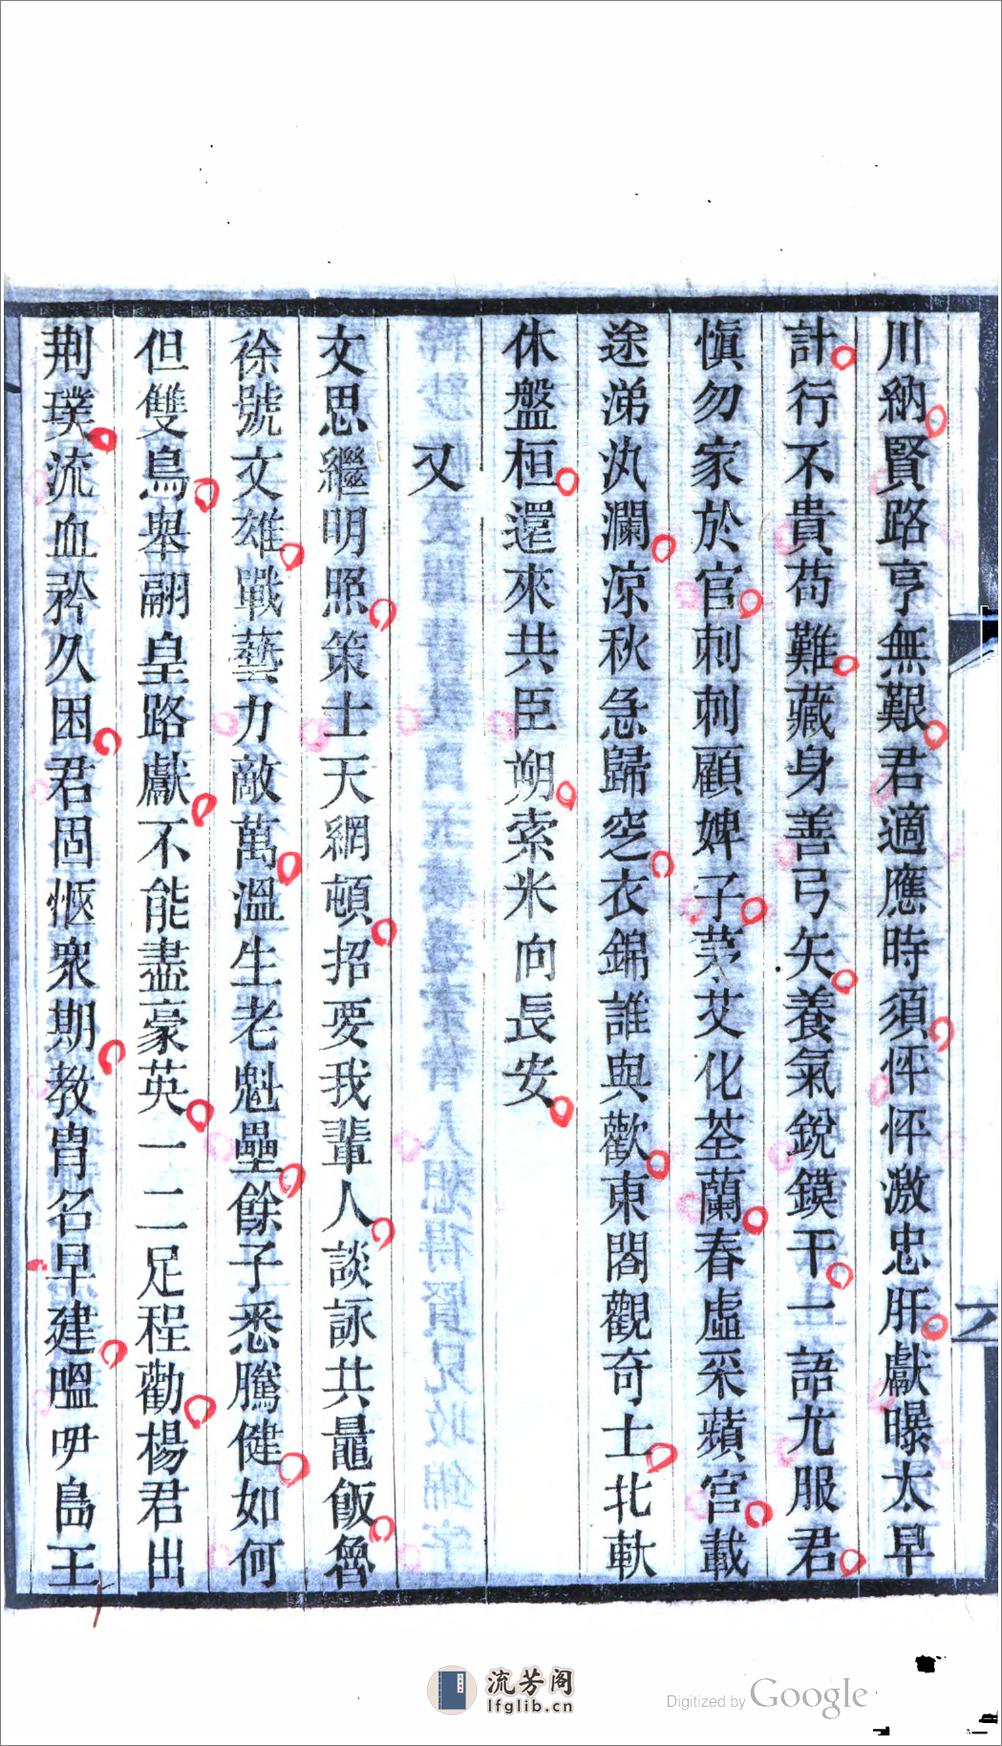 川納賢路亨無艱君適應時須怦怦激忠肝獻曝太早
計行不貴苟難藏身善弓矢養氣銳鏌干一語尤服君
愼勿家於官刺刺顧婢子茅艾化荃蘭春虛采蘋宮載
途涕汍瀾涼秋急歸空衣錦誰與歡東閣觀奇士北軑
休盤桓還來共臣朔索米向長安
又
文思繼明照策士天網頓招要我輩人談詠共鼂飯魯
徐號文雄戰藝力敵萬溫生老魁壘餘子悉騰健如何
但雙鳥舉翮皇路獻不能盡豪英一二足程勸楊君出
荆璞流血矜久困君固愜衆期教胄名早建嗢吚島王
流芳阁
lfglib.cn
Digitized by Google